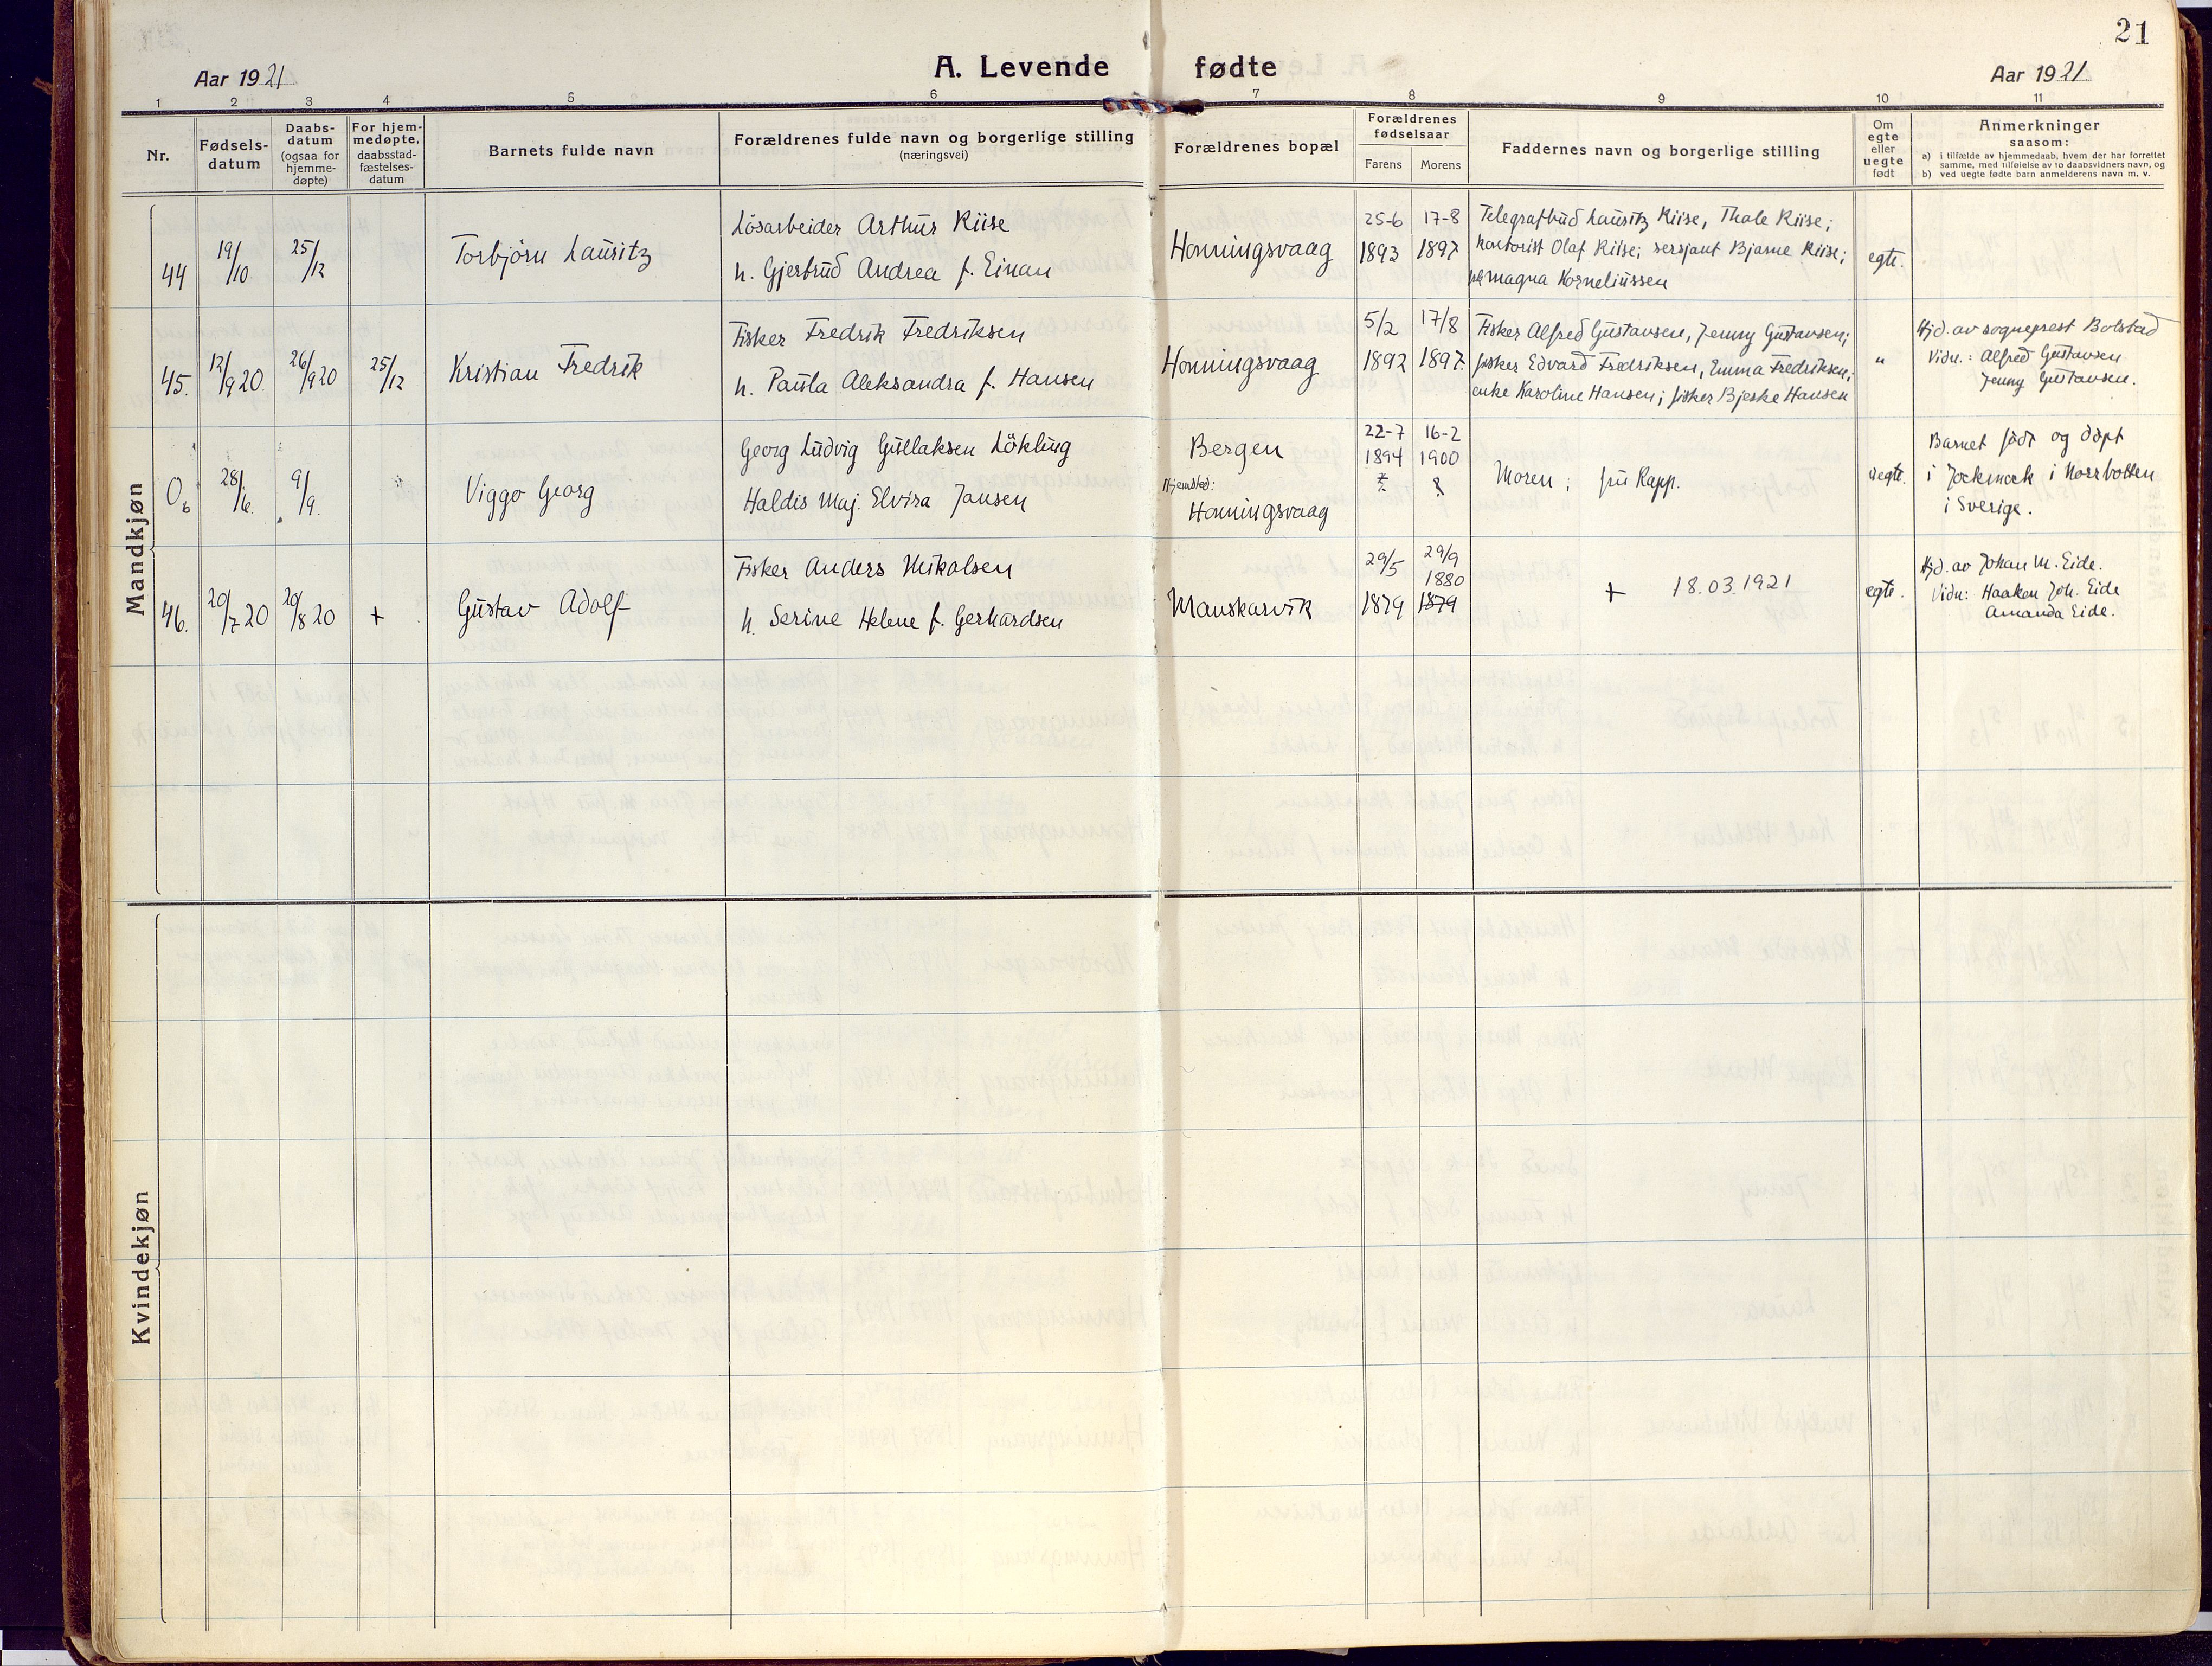 21
Aar 1921
A. Levende fødte
Aar 1921
1 2 3 4 5 6 7 8 9 10 11
Nr.
Fødsels-
datum
Daabs-
datum
(ogsaa for
hjemme-
døpte)
For hjem-
medøpte,
daabsstad-
fæstelses-
datum
Barnets fulde navn
Forældrenes fulde navn og borgerlige stilling
(næringsvei)
Forældrenes bopæl
Forældrenes
fødselsaar
Farens Morens
Faddernes navn og borgerlige stilling
Om
egte
eller
uegte
født
Anmerkninger
saasom:
a) i tilfælde av hjemmedaab, hvem der har forrettet
samme, med tilføielse av to daabsvidners navn, og
b) ved uegte fødte barn anmelderens navn m. v.
Mandkjøn
44
19/10
25/12
Torbjörn Lauritz
Lösarbeider Arthur Riise
h. Gjertrud Andrea f. Einan
Honningsvaag
25-6
1893
17-8
1897
Telegrafbud Lauritz Riise, Thale Riise;
kontorist Olaf Riise; sersjant Bjarne Riise;
Magna Korneliussen
egte.
45.
12/9 20.
26/9 20
25/12
Kristian Fredrik
Fisker Fredrik Fredriksen
h. Paula Aleksandra f. Hansen
Honningsvaag
5/2
1892
17/8
1897.
Fisker Alfred Gustavsen, Jenny Gustavsen;
fisker Edvard Fredriksen, Emma Fredriksen;
enke Karoline Hansen; fisker Bjeske Hansen
"
Hjd. av sogneprest Bolstad
Vidn.: Alfred Gustavsen
Jenny Gustavsen.
O6
28/6.
9/9.
Viggo Georg
Georg Ludvig Gullaksen Lökling
Haldis Maj. Elvira Jansen
Bergen
Hjemsted:
Honningsvaag
22-7
1894
16-2
1900
Moren; fru Rapp.
uegte.
Barnet födt og döpt
i Jockmock i Norrbotten
i Sverige.
46.
20/7 20
29/8 20
+
Gustav Adolf
Fisker Anders Nikolsen
h. Serine Helene f. Gerhardsen
Manskarvik
29/5
1879
29/9
1880
1879
+ 18.03.1921
egte.
Hjd. av Johan M. Eide.
Vidn: Haakon Joh. Eide
Amanda Eide.
Kvindekjøn